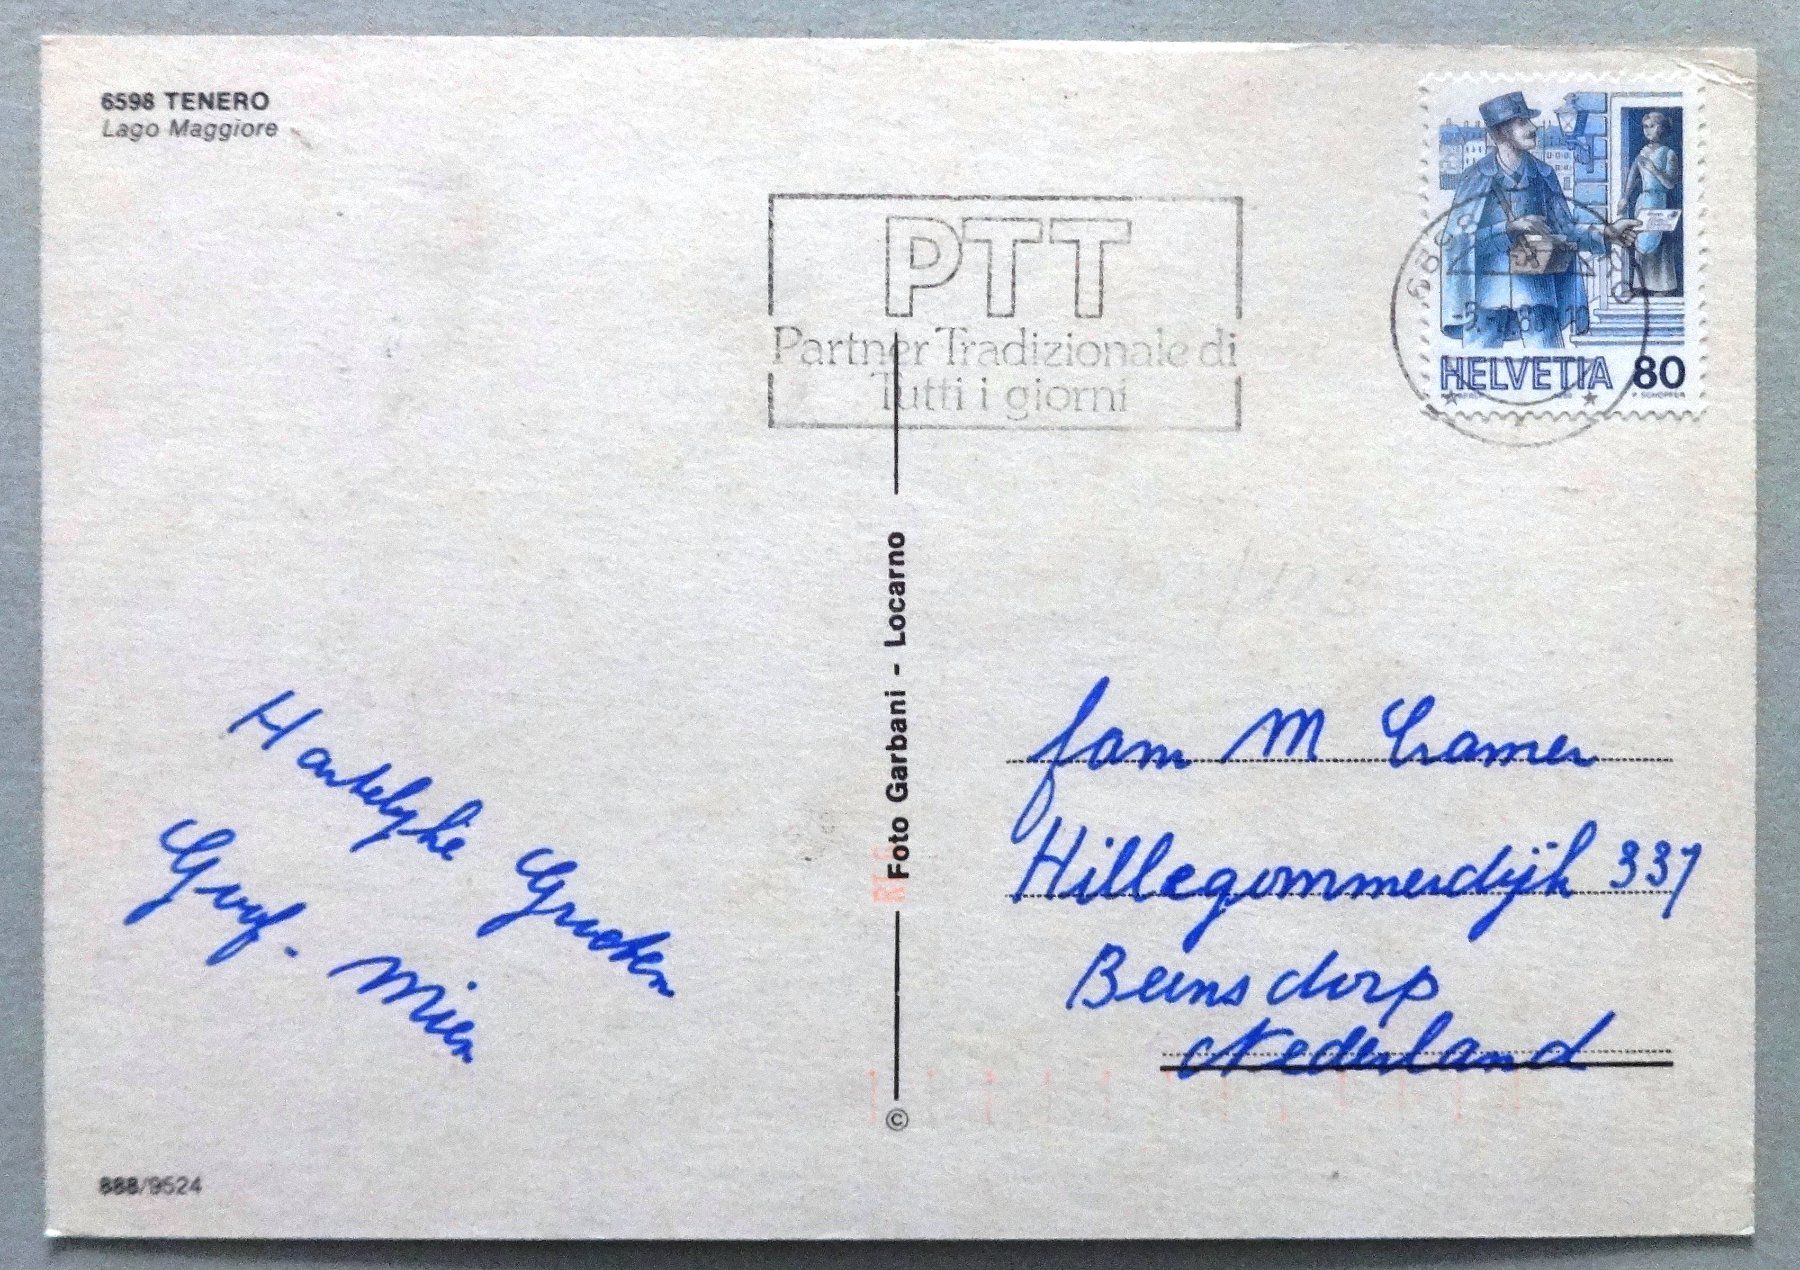 6598 TENERO
Lago Maggiore
PTT
Partner Tradizionale di
Tutti i giorni
HELVETIA 80
Foto Garbani - Locarno
©
Hartelyke Groeten
Mien
fam M Cramer
Hillegommerdijk 337
Beinsdorp
Nederland
888/9524